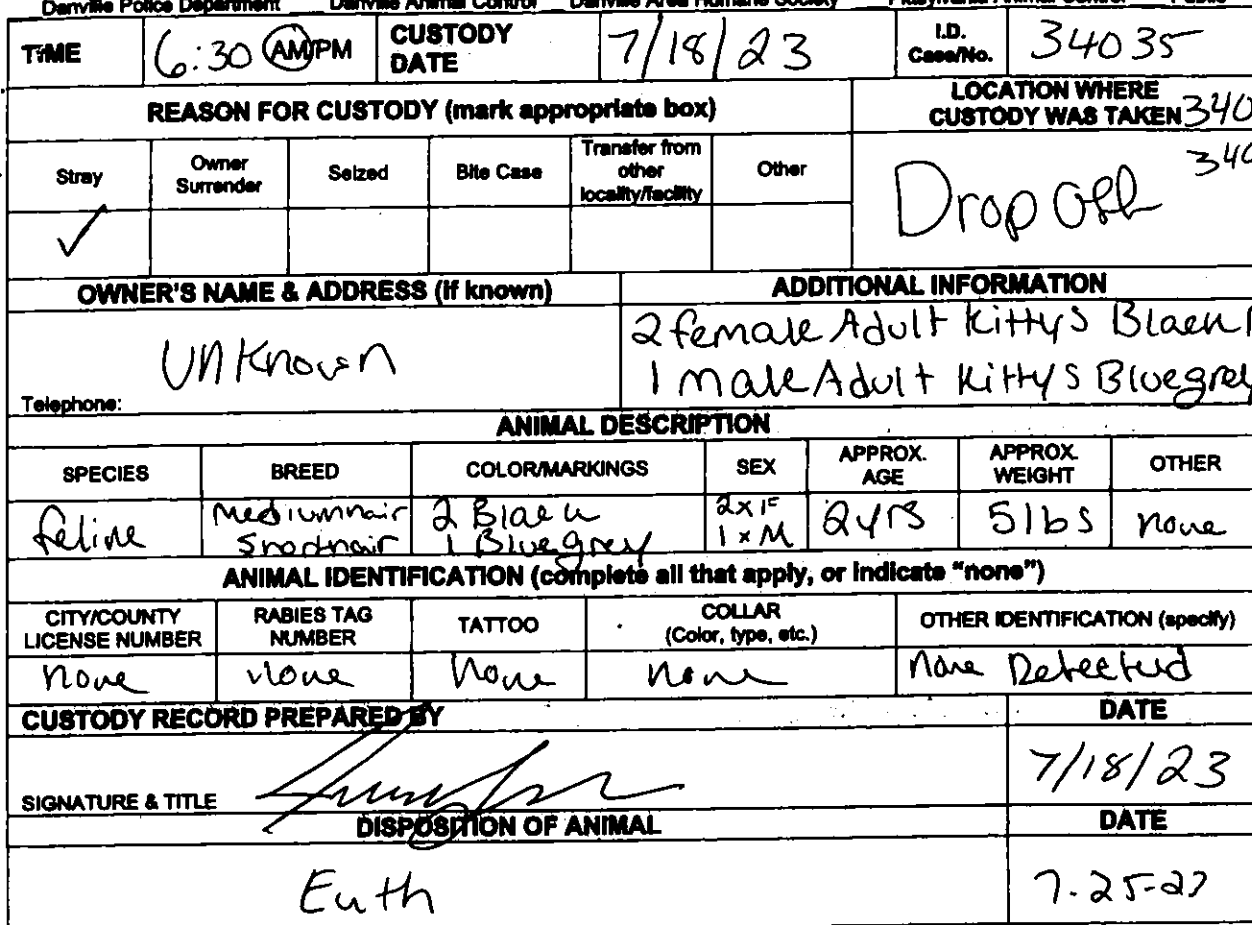 Danville Police Department Danville Animal Control Danville Area Humane Society Pittsylvania Animal Control Public
TIME 6:30 AM/PM CUSTODY DATE 7/18/23 I.D. Case/No. 34035
REASON FOR CUSTODY (mark appropriate box) LOCATION WHERE
CUSTODY WAS TAKEN 340
340
Stray Owner Surrender Seized Bite Case Transfer from other locality/facility Other
✓ Drop Off
OWNER'S NAME & ADDRESS (if known) ADDITIONAL INFORMATION
Unknown 2 female Adult Kittys Black
1 male Adult Kittys Bluegrey
Telephone:
ANIMAL DESCRIPTION
SPECIES BREED COLOR/MARKINGS SEX APPROX. AGE APPROX. WEIGHT OTHER
feline Mediumhair Shorthair 2 Black 1 Bluegrey 2xF 1xM 2yrs 5lbs none
ANIMAL IDENTIFICATION (complete all that apply, or indicate "none")
CITY/COUNTY LICENSE NUMBER RABIES TAG NUMBER TATTOO COLLAR (Color, type, etc.) OTHER IDENTIFICATION (specify)
none none None none None Detected
CUSTODY RECORD PREPARED BY DATE
SIGNATURE & TITLE 7/18/23
DISPOSITION OF ANIMAL DATE
Euth 7-25-23